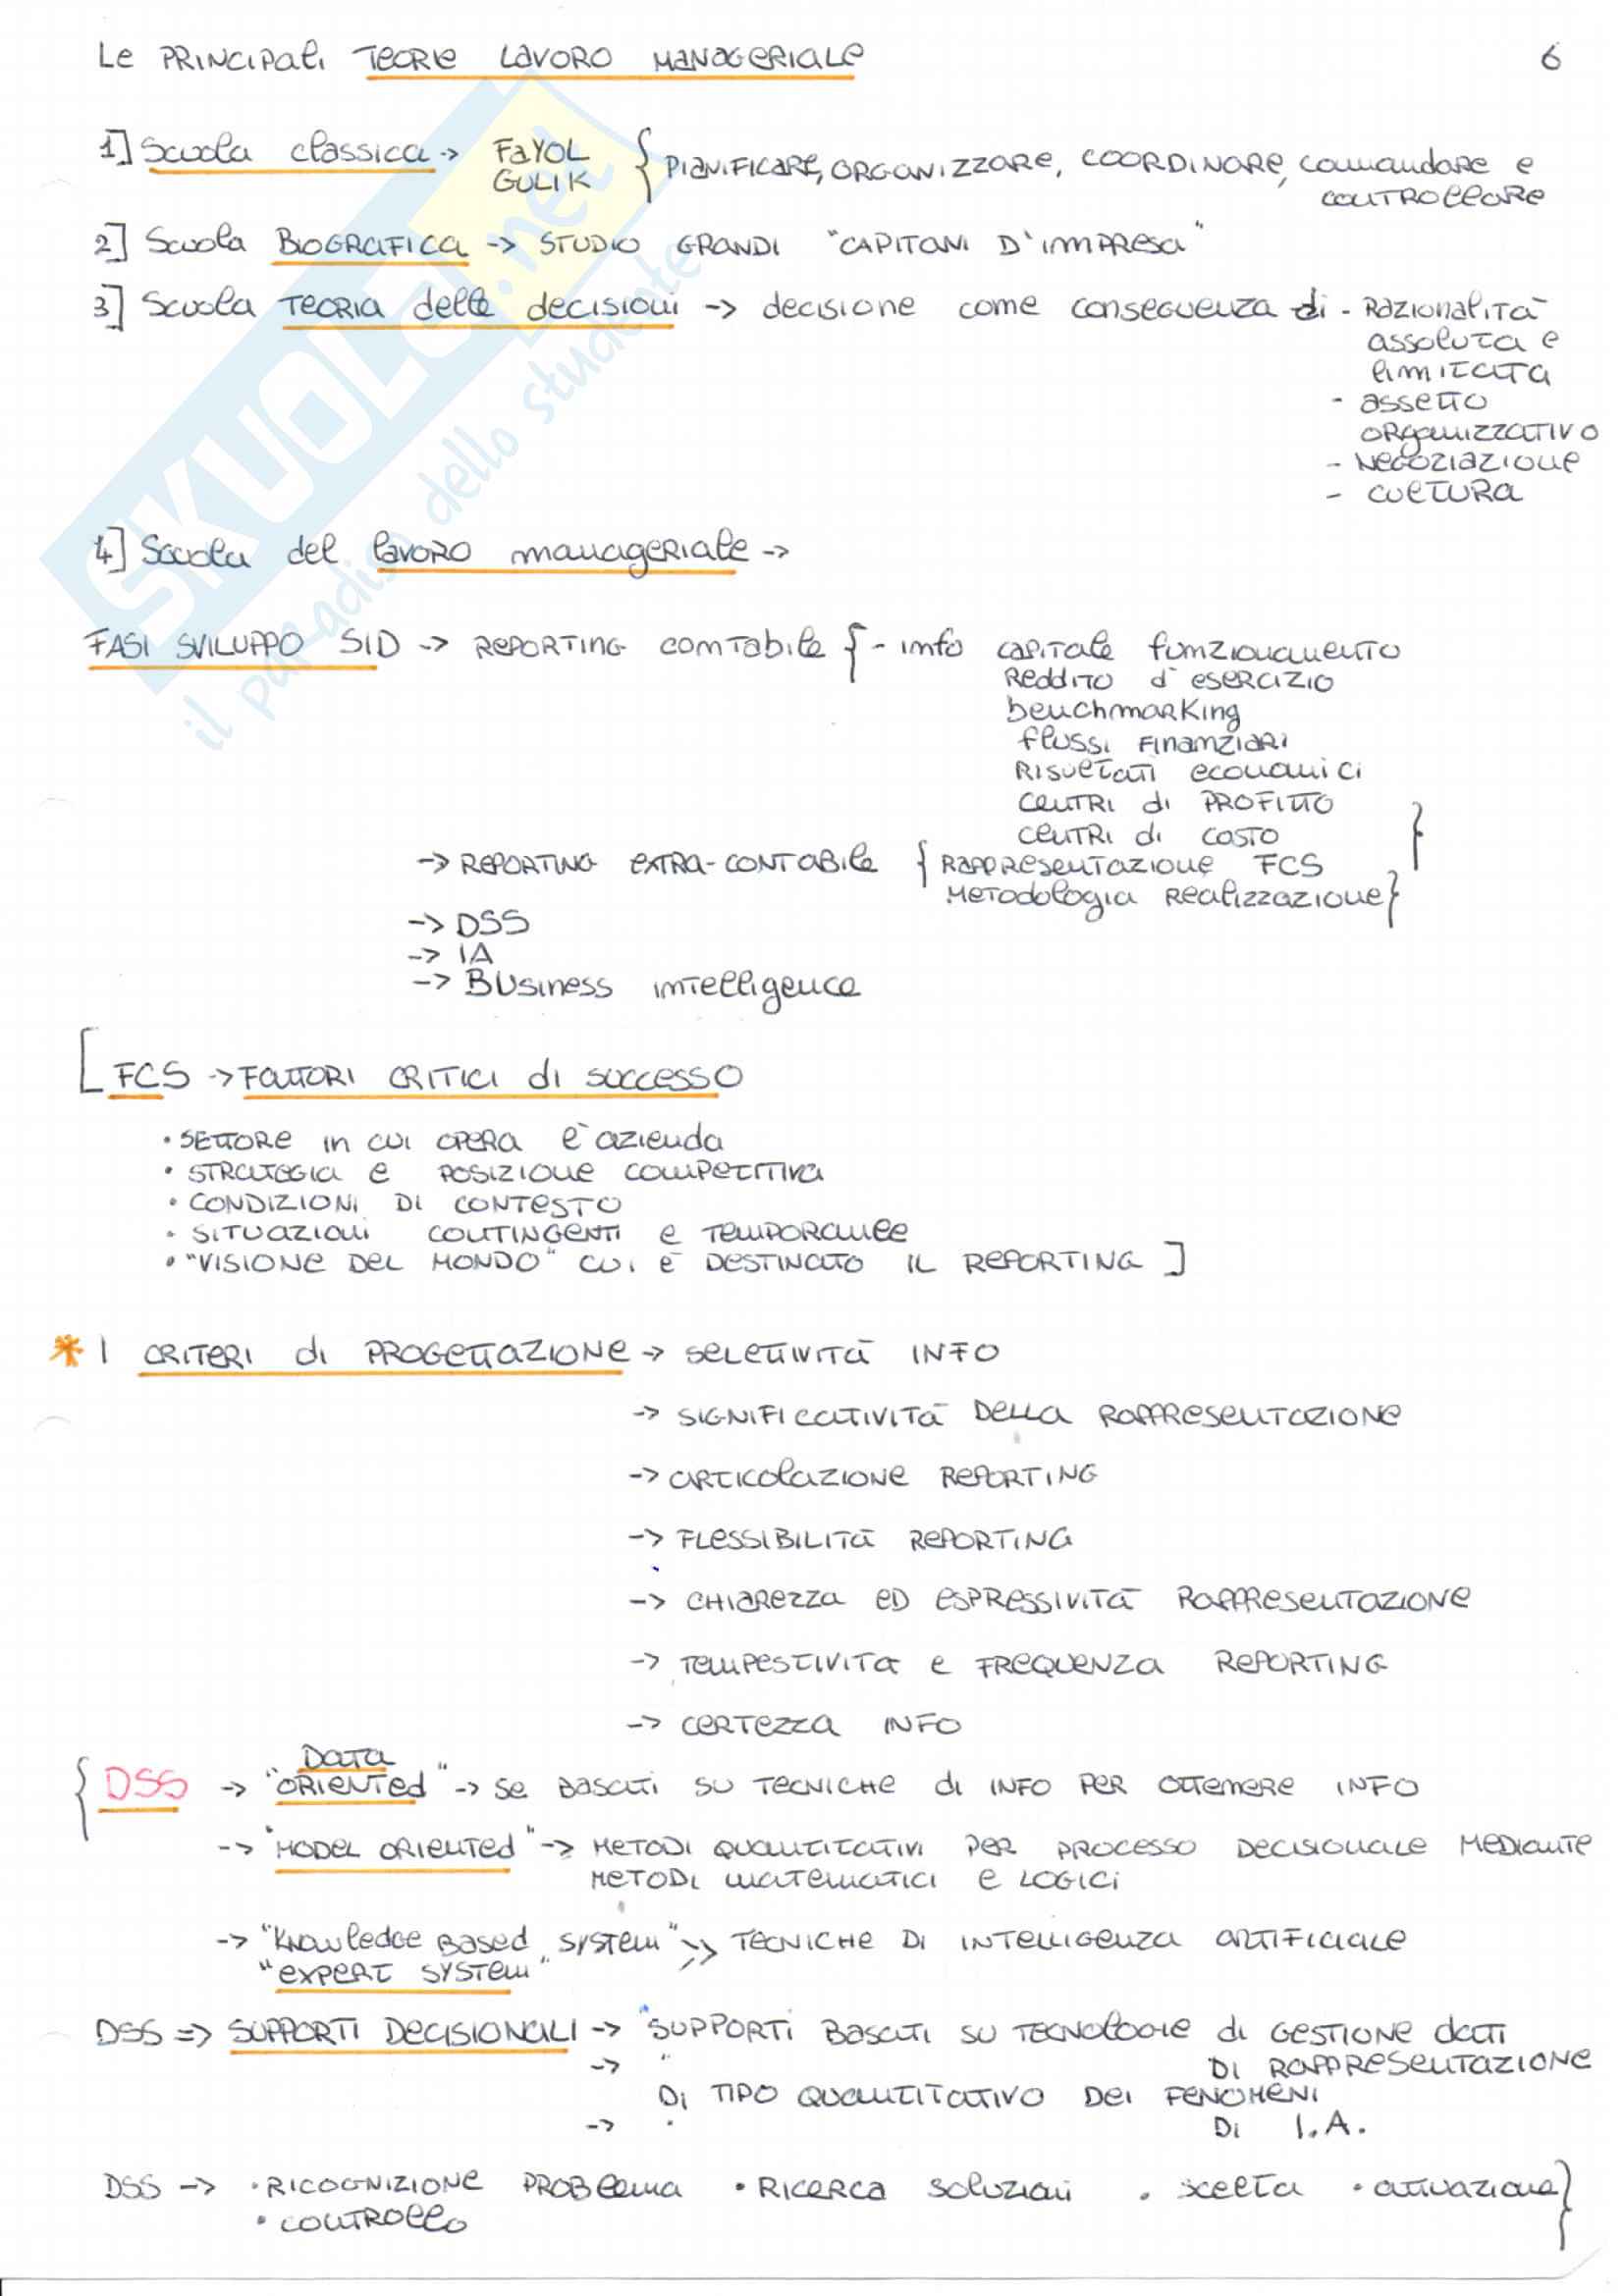 Le PRINCIPALI TEORIE LAVORO MANAGERIALE 6
1] Scuola classica -> FAYOL { PIANIFICARE, ORGANIZZARE, COORDINARE, comandare e
GULIK CONTROLLARE
2] Scuola BIOGRAFICA -> STUDIO GRANDI "CAPITANI D'IMPRESA"
3] Scuola TEORIA delle decisioni -> decisione come conseguenza di - RAZIONALITÀ
assoluta e
limitata
- assetto
organizzativo
- Negoziazione
- cultura
4] Scuola del lavoro manageriale ->
FASI SVILUPPO SID -> REPORTING contabile { - info capitale funzionamento
Reddito d'esercizio
benchmarking
flussi finanziari
Risultati economici
centri di PROFITTO
centri di costo }
-> REPORTING EXTRA-CONTABILE { RAPPRESENTAZIONE FCS
Metodologia Realizzazione }
-> DSS
-> IA
-> BUsiness intelligence
[ FCS -> FATTORI CRITICI di SUCCESSO
• SETTORE in cui opera l'azienda
• STRATEGIA e POSIZIONE COMPETITIVA
• CONDIZIONI DI CONTESTO
• SITUAZIONI CONTINGENTI e TEMPORANEE
• "VISIONE DEL MONDO" CUI È DESTINATO IL REPORTING ]
* I CRITERI di PROGETTAZIONE -> SELETTIVITÀ INFO
-> SIGNIFICATIVITÀ DELLA RAPPRESENTAZIONE
-> ARTICOLAZIONE REPORTING
-> FLESSIBILITÀ REPORTING
-> CHIAREZZA ED ESPRESSIVITÀ RAPPRESENTAZIONE
-> TEMPESTIVITÀ e FREQUENZA REPORTING
-> CERTEZZA INFO
DATA
{ DSS -> "ORIENTED" -> se BASATI SU TECNICHE di INFO PER OTTENERE INFO
-> "MODEL ORIENTED" -> METODI QUANTITATIVI PER PROCESSO DECISIONALE MEDIANTE
METODI MATEMATICI e LOGICI
-> "KNOWLEDGE BASED SYSTEM" ->> TECNICHE DI INTELLIGENZA ARTIFICIALE
"EXPERT SYSTEM"
DSS => SUPPORTI DECISIONALI -> "SUPPORTI BASATI SU TECNOLOGIE di GESTIONE DATI
-> " DI RAPPRESENTAZIONE
DI TIPO QUANTITATIVO DEI FENOMENI
-> " DI I.A.
DSS -> • RICOGNIZIONE PROBLEMA • RICERCA soluzioni • scelta • attivazione }
• CONTROLLO
SKUOLA.net
il paradiso dello studente